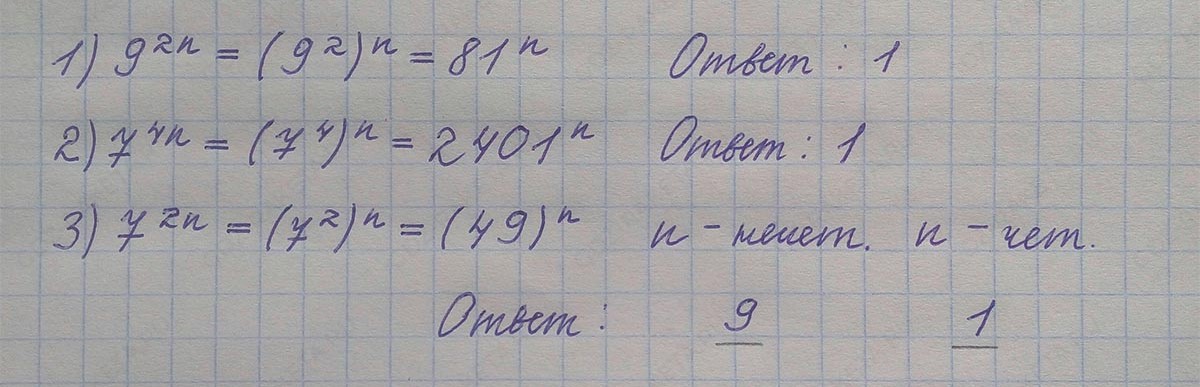 1) 9²ⁿ = (9²)ⁿ = 81ⁿ Ответ: 1
2) 7⁴ⁿ = (7⁴)ⁿ = 2401ⁿ Ответ: 1
3) 7²ⁿ = (7²)ⁿ = (49)ⁿ n - нечет. n - чет.
Ответ: 9 1